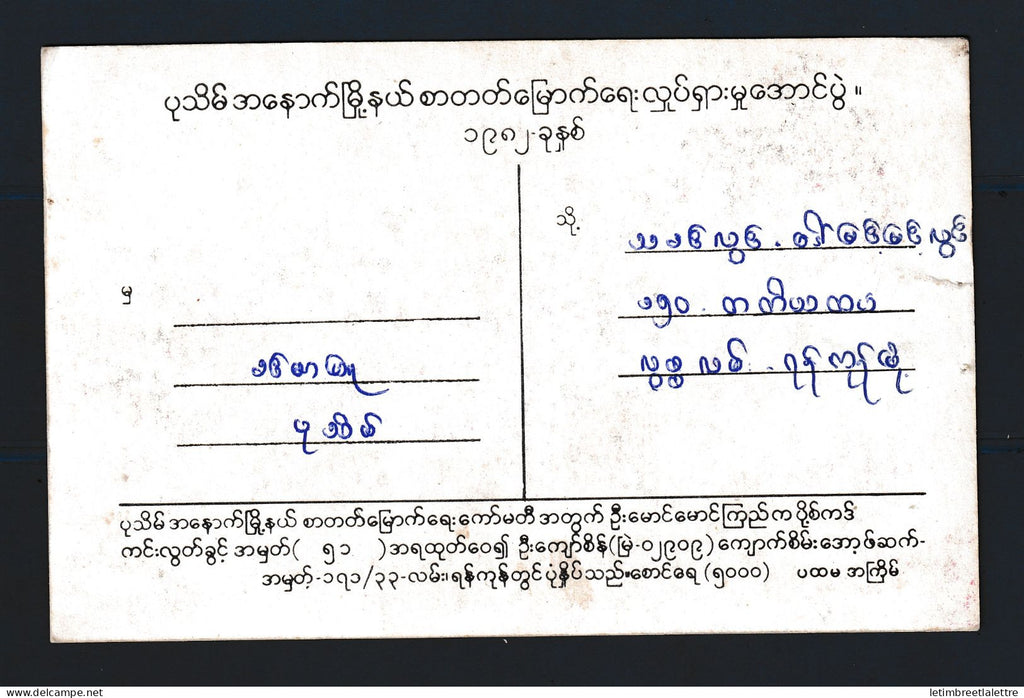 ပုသိမ်အနောက်မြို့နယ်စာတတ်မြောက်ရေးလှုပ်ရှားမှုအောင်ပွဲ။
၁၉၈၂-ခုနှစ်
သို့
မှ
၁၅၀.
လမ်း. ရန်ကုန်မြို့
ပုသိမ်
ပုသိမ်အနောက်မြို့နယ် စာတတ်မြောက်ရေးကော်မတီအတွက် ဦးမောင်မောင်ကြည်က ပို့စ်ကဒ်
ကင်းလွတ်ခွင့် အမှတ်( ၅၁ )အရထုတ်ဝေ၍ ဦးကျော်စိန်(မြဲ-၀၂၉၀၉)ကျောက်စိမ်းအော့ဖ်ဆက်-
အမှတ်-၁၇၁/၃၃-လမ်း၊ရန်ကုန်တွင်ပုံနှိပ်သည်။စောင်ရေ(၅၀၀၀) ပထမအကြိမ်
delcampe.net
letimbreetlalettre